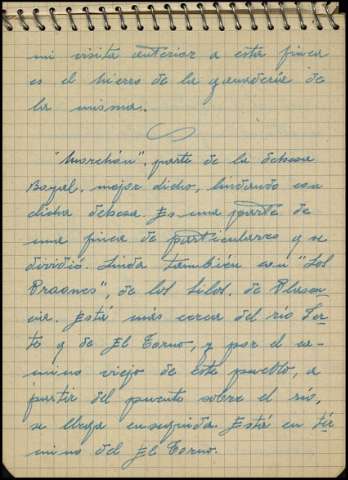 mi visita anterior a esta finca
es el hierro de la ganadería de
la misma.
"Marchán", parte de la dehesa
Boyal, mejor dicho, lindando con
dicha dehesa. Es una parte de
una finca de particulares y se
dividió. Linda también con "Los
de los Silos, de Plasen-
cia. Está más cerca del río Jer-
te y de El Torno, y por el ca-
mino viejo de este pueblo, a
partir del puente sobre el río,
se llega enseguida. Está en tér
mino del El Torno.